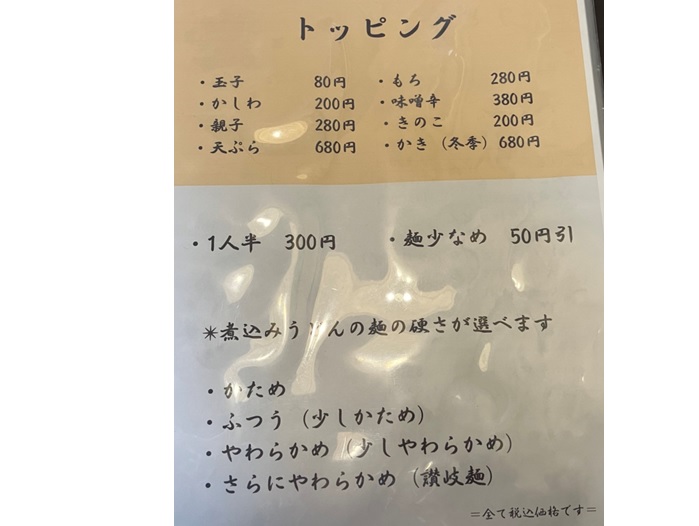 トッピング
・玉子 80円 ・もち 280円
・かしわ 200円 ・味噌辛 380円
・親子 280円 ・きのこ 200円
・天ぷら 680円 ・かき（冬季）680円
・1人半 300円 ・麺少なめ 50円引
＊煮込みうどんの麺の硬さが選べます
・かため
・ふつう（少しかため）
・やわらかめ（少しやわらかめ）
・さらにやわらかめ（讃岐麺）
＝全て税込価格です＝